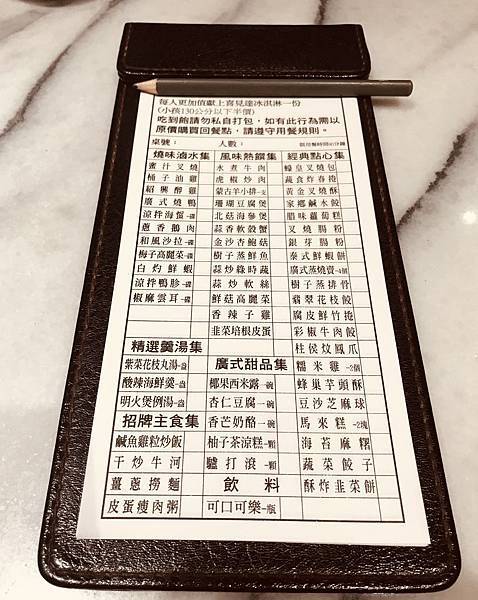 每人更加值獻上喜見達冰淇淋一份
(小孩130公分以下半價)
吃到飽請勿私自打包，如有此行為需以
原價購買回餐點，請遵守用餐規則。
桌號： 人數：
燒味滷水集 風味熱饌集 經典點心集
蜜汁叉燒 水煮牛肉 蠔皇叉燒包
桶子油雞 虎椒炒肉 蔬食炸春捲
紹興醉雞 蒙古羊小排-支 黃金叉燒酥
廣式燒鴨 珊瑚豆腐煲 家鄉鹹水餃
涼拌海蜇-碟 北菇海參煲 腊味蘿蔔糕
蔥香鵝肉 蒜香軟發蟹 叉燒腸粉
和風沙拉-碟 金沙杏鮑菇 銀芽腸粉
梅子高麗菜-碟 樹子蒸鮮魚 泰式鮮蝦餅
白灼鮮蝦 蒜炒綠時蔬 廣式蒸燒賣-4個
涼拌鴨胗-碟 蒜炒軟絲 樹子蒸排骨
椒麻雲耳-碟 鮮菇高麗菜 翡翠花枝餃
香辣子雞 腐皮鮮竹捲
韭菜培根皮蛋 彩椒牛肉餃
精選羹湯集 桂侯炆鳳爪
紫菜花枝丸湯-盅 廣式甜品集 糯米雞-2個
酸辣海鮮羹-盅 椰果西米露-碗 蜂巢芋頭酥
明火煲例湯-盅 杏仁豆腐-碗 豆沙芝麻球
招牌主食集 香芒奶酪-碗 馬來糕-2塊
鹹魚雞粒炒飯 柚子茶涼糕-顆 海苔麻糬
干炒牛河 驢打滾-顆 蔬菜餃子
薑蔥撈麵 飲料 酥炸韭菜餅
皮蛋瘦肉粥 可口可樂-瓶